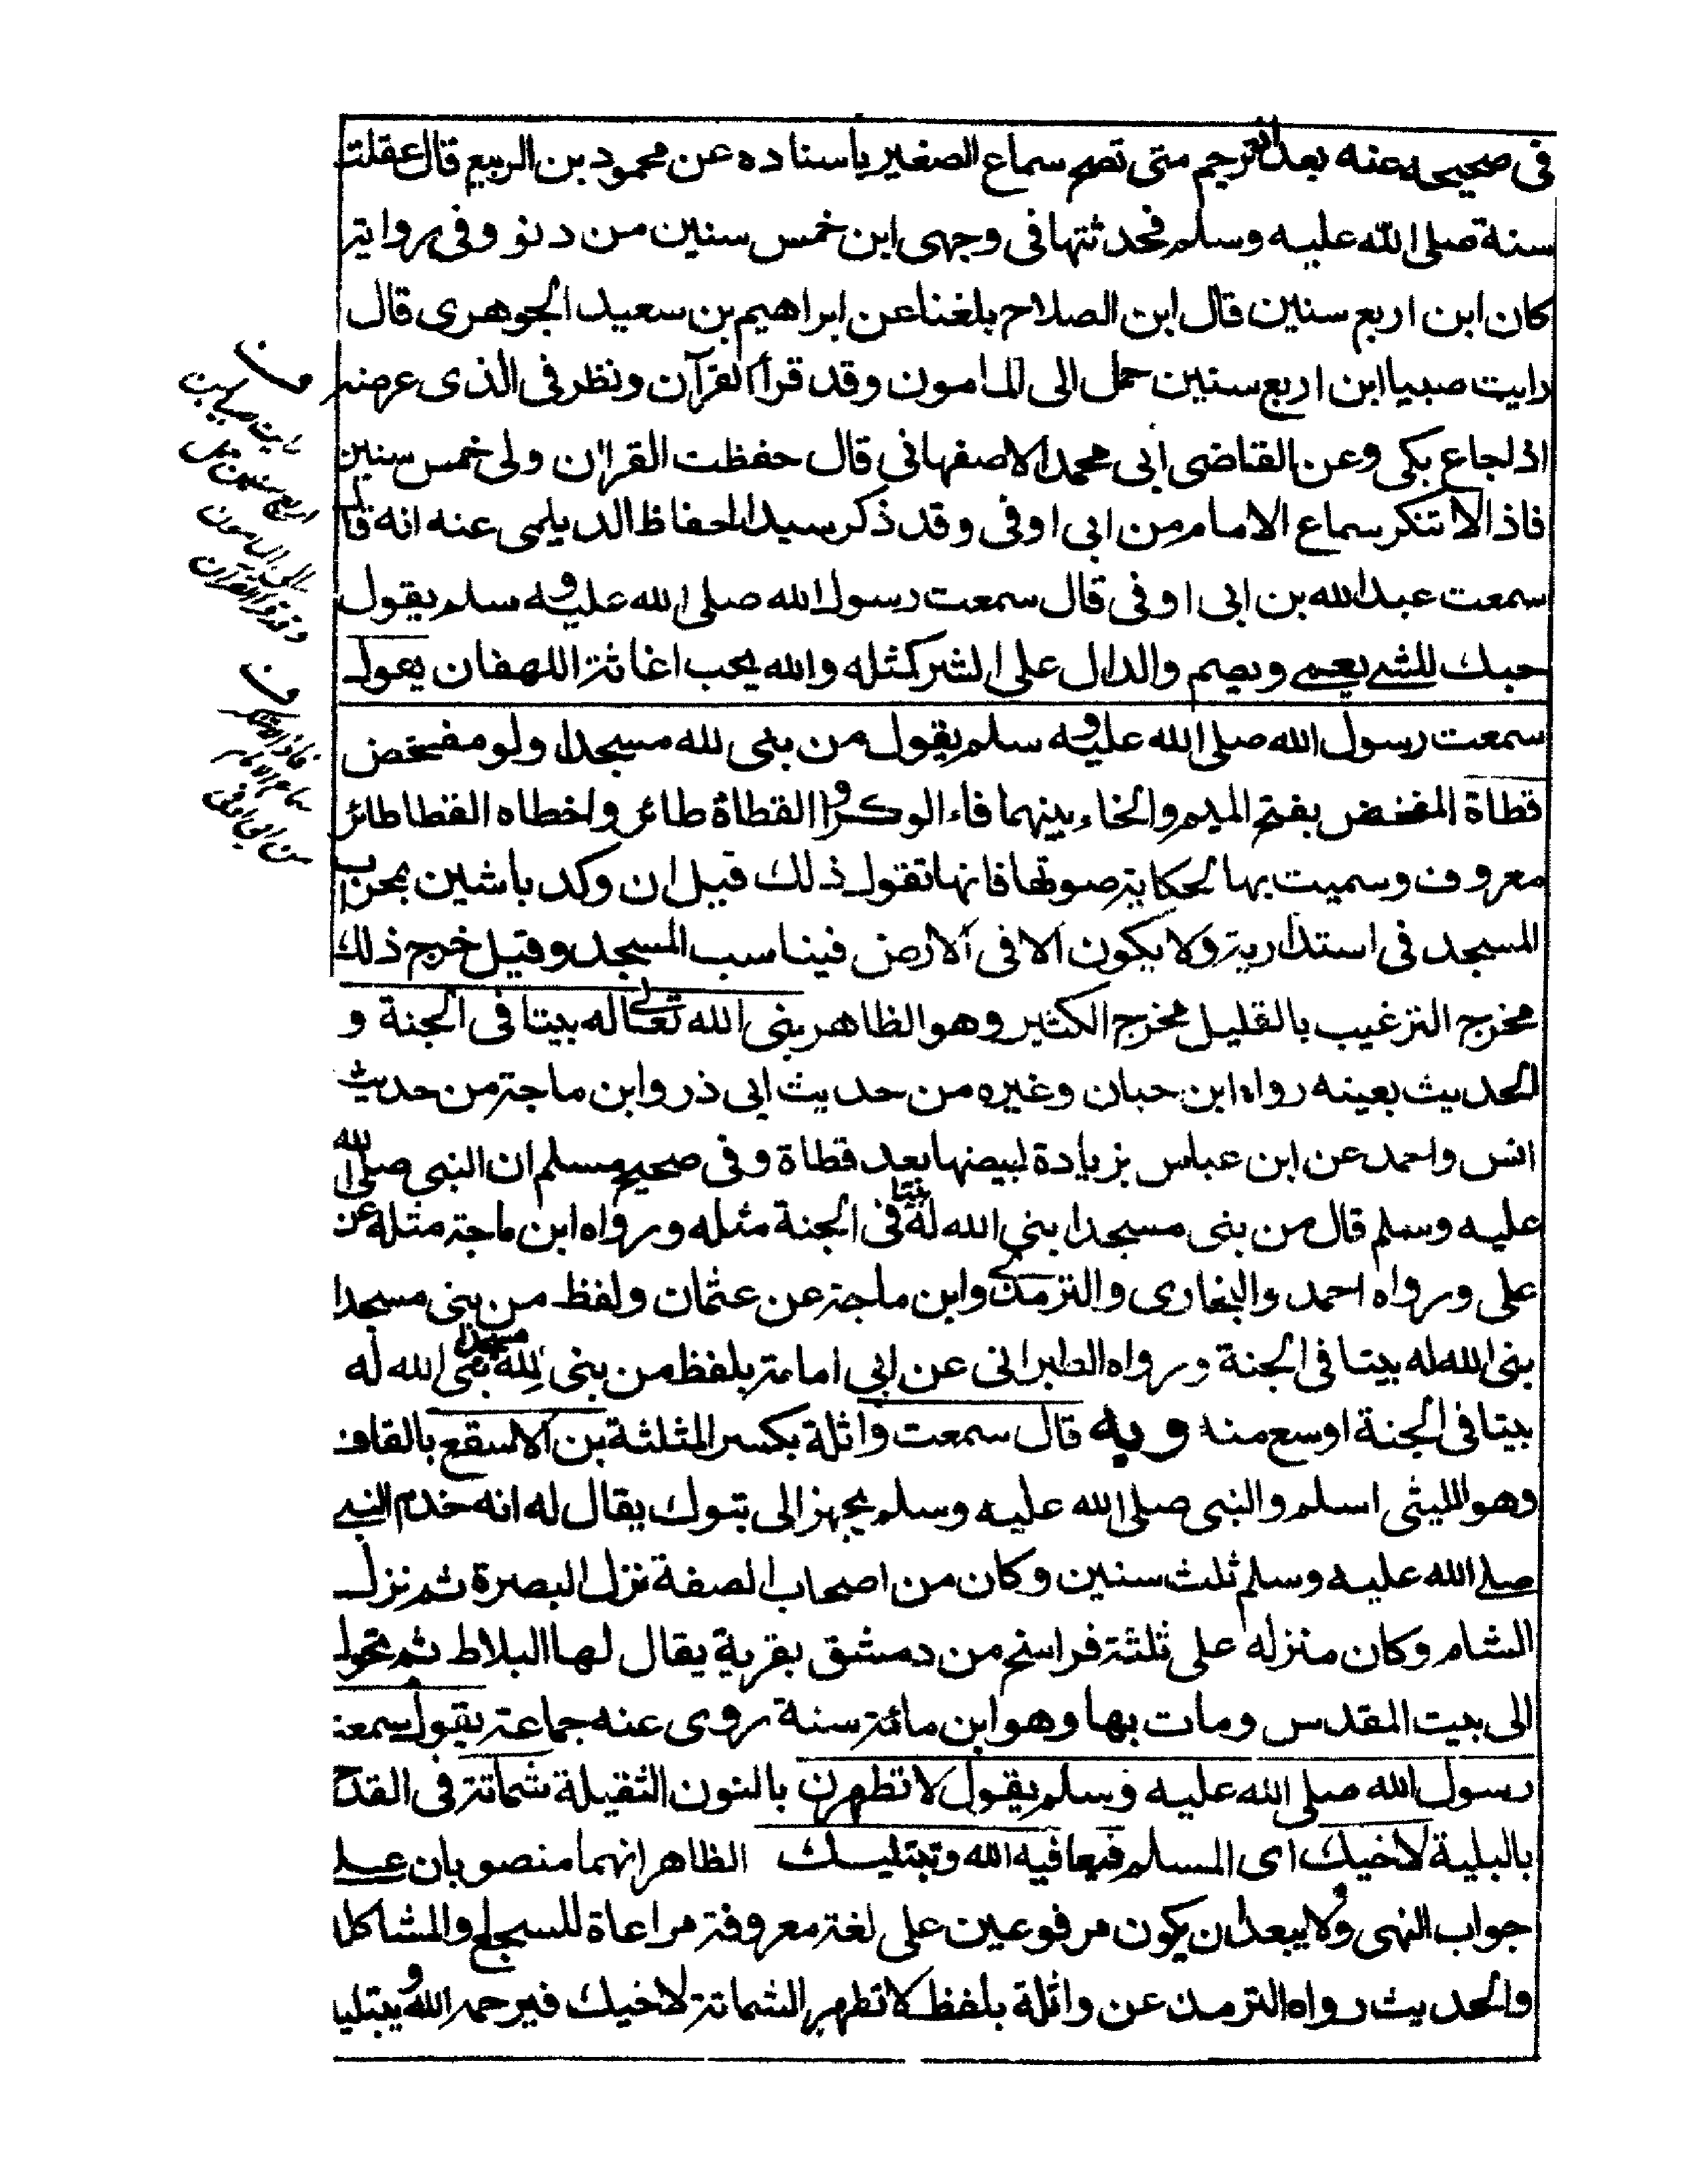 فى صحيحه عنه بعد الترجم متى تصح سماع الصغير باسناده عن محمود بن الربيع قال عقلت
سنة صلى الله عليه وسلم فحدثتها فى وجهى ابن خمس سنين من دنو وفى رواية
كان ابن اربع سنين قال ابن الصلاح بلغنا عن ابراهيم بن سعيد الجوهرى قال
رايت صبيا ابن اربع سنين حمل الى المامون وقد قرأ القرآن ونظر فى الذى عرضه
اذا جاع بكى وعن القاضى ابى محمد الاصفهانى قال حفظت القران ولى خمس سنين
فاذا لا تنكر سماع الامام من ابى اوفى وقد ذكر سيد الحفاظ الديلمى عنه انه قال
سمعت عبد الله بن ابى اوفى قال سمعت رسول الله صلى الله عليه و سلم يقول
حبك للشئ يعمى ويصم والدال على الشر كمثله والله يحب اغاثة اللهفان يعول
سمعت رسول الله صلى الله عليه و سلم يقول من بنى لله مسجدا ولو مفحض
قطاة المفحض بفتح الميم والخاء بينهما فاء الوكر و القطاة طائر واخطاه القطا طائر
معروف وسميت بها لحكاية صوتها فانها تقول ذلك قيل ان وكد باشين بمحرب
المسجد فى استدارية ولا يكون الا فى الارض فيناسب المسجد وقيل خرج ذلك
مخرج الترغيب بالقليل مخرج الكثير وهو الظاهر بنى الله تعالى له بيتا فى الجنة و
الحديث بعينه رواه ابن حبان وغيره من حديث ابى ذر وابن ماجة من حديث
انس واحمد عن ابن عباس بزيادة لبيضها بعد قطاة وفى صحيح مسلم ان النبى صلى الله
عليه وسلم قال من بنى مسجدا بنى الله له بيتا فى الجنة مثله ورواه ابن ماجة مثله عن
على ورواه احمد والبخارى والترمذى وابن ماجة عن عثمان ولفظ من بنى مسجدا
بنى الله له بيتا فى الجنة ورواه الطبرانى عن ابى امامة بلفظ من بنى لله مسجدا بنى الله له
بيتا فى الجنة اوسع منه وبه قال سمعت واثلة بكسر المثلثة بن الاسقع بالقاف
وهو الليثى اسلم والنبى صلى الله عليه وسلم يجهز الى تبوك يقال له انه خدم النبى
صلى الله عليه وسلم ثلث سنين وكان من اصحاب الصفة نزل البصرة ثم نزل
الشام وكان منزله على ثلثة فراسخ من دمشق بقرية يقال لها البلاط ثم تحول
الى بيت المقدس ومات بها وهو ابن مائة سنة روى عنه جماعة يقول سمعت
رسول الله صلى الله عليه وسلم يقول لا تظهرن بالنون الثقيلة شماتة فى القدح
بالبلية لاخيك اى المسلم فيعافيه الله ويبتليك الظاهر انهما منصوبان على
جواب النهى ولا يبعد ان يكون مرفوعين على لغة معروفة مراعاة للسجع والمشاكلة
والحديث رواه الترمذ عن واثلة بلفظ لا تظهر الشماتة لاخيك فيرحمه الله و يبتليك
ف
رايت صبيا ابن
اربع سنين حمل
الى المامون
وقد قرأ القرآن
ف
فاذا لا تنكر
سماع الامام
من ابى اوفى